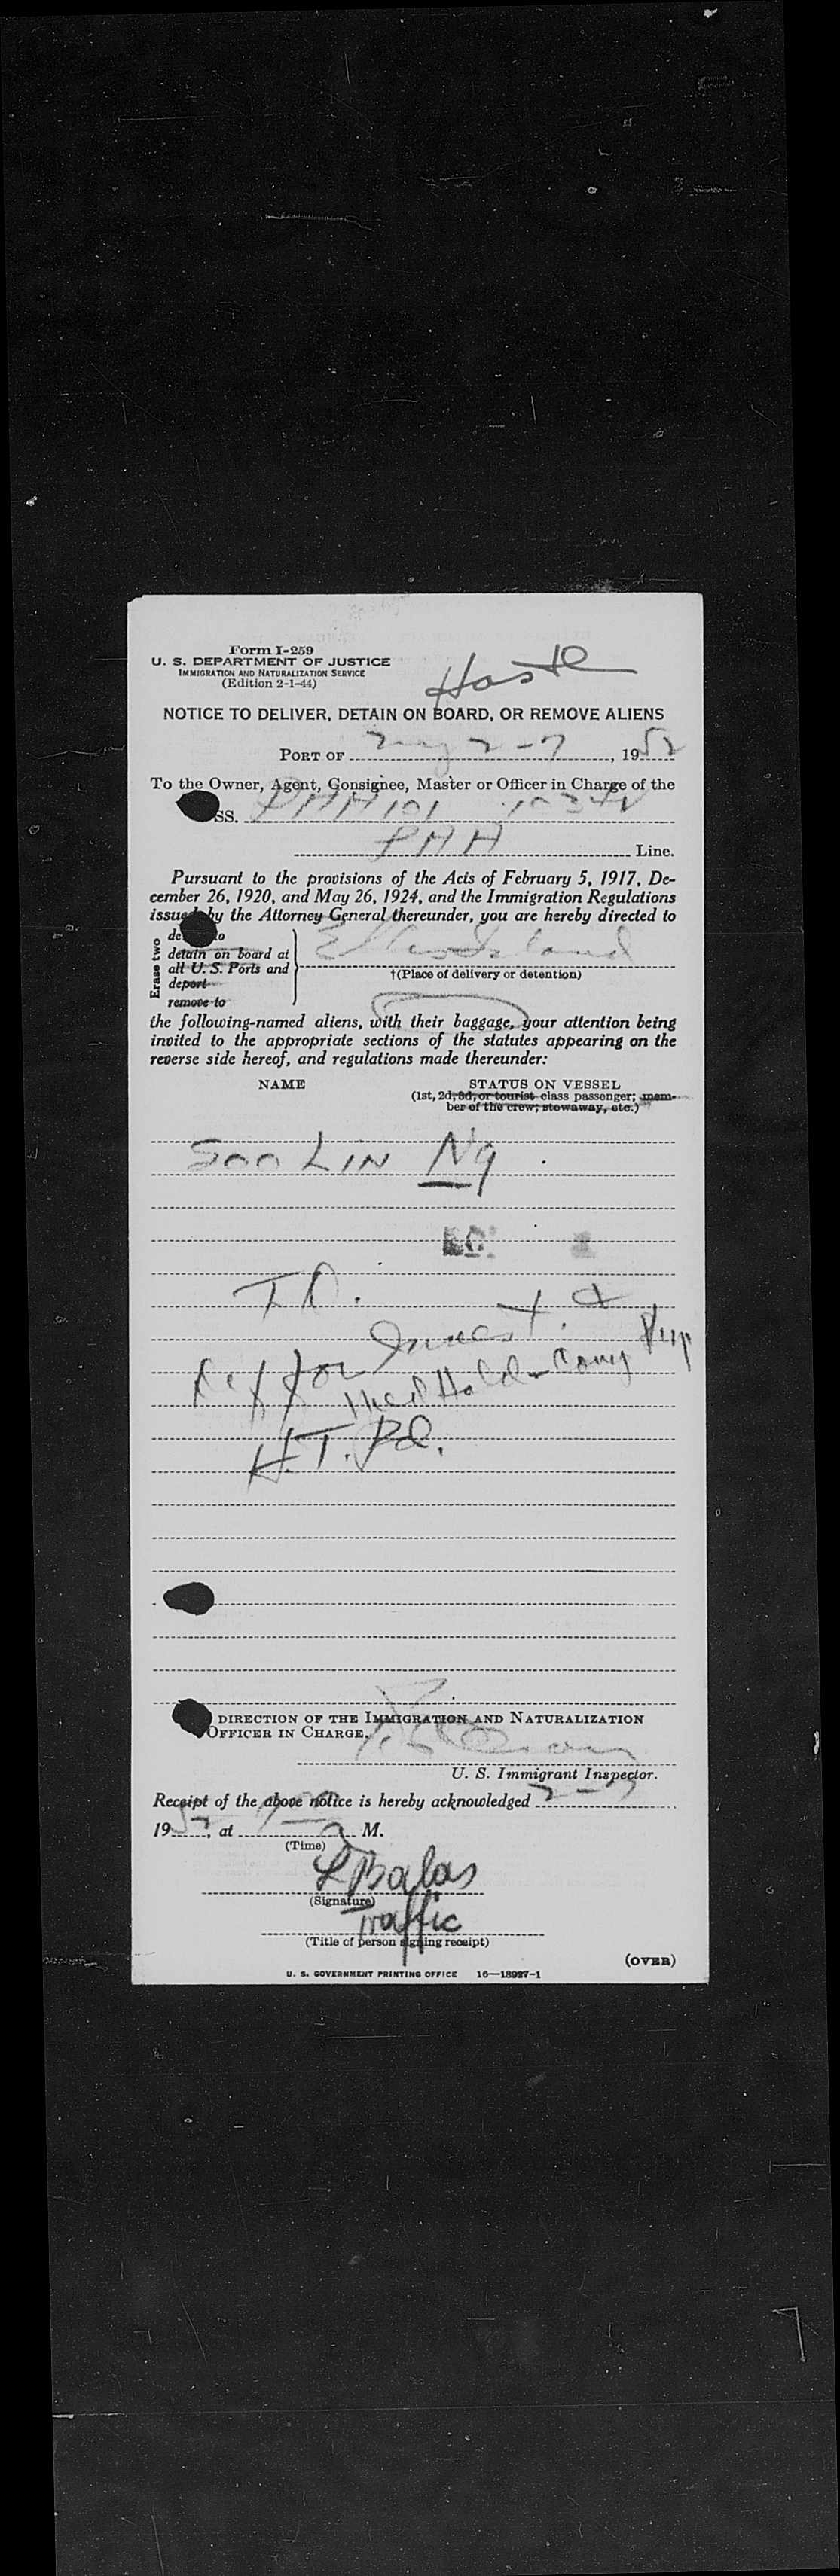 Form I-259
U. S. DEPARTMENT OF JUSTICE
IMMIGRATION AND NATURALIZATION SERVICE
(Edition 2-1-44)
NOTICE TO DELIVER, DETAIN ON BOARD, OR REMOVE ALIENS
PORT OF 2-7, 1952
To the Owner, Agent, Consignee, Master or Officer in Charge of the
SS. PAA 101
PAA Line.
Pursuant to the provisions of the Acts of February 5, 1917, De-
cember 26, 1920, and May 26, 1924, and the Immigration Regulations
issued by the Attorney General thereunder, you are hereby directed to
Erase two
detain on board at
all U. S. Ports and
deport
remove to
Ellis Island
†(Place of delivery or detention)
the following-named aliens, with their baggage, your attention being
invited to the appropriate sections of the statutes appearing on the
reverse side hereof, and regulations made thereunder:
NAME STATUS ON VESSEL
(1st, 2d, 3d, or tourist class passenger; mem-
ber of the crew; stowaway, etc.)
SOO LIN Ng
T.D.
for Invest. &
H.T. Pd.
DIRECTION OF THE IMMIGRATION AND NATURALIZATION
OFFICER IN CHARGE.
U. S. Immigrant Inspector.
Receipt of the above notice is hereby acknowledged 2-7
1952, at M.
(Time)
L Balas
(Signature)
Traffic
(Title of person signing receipt)
(OVER)
U. S. GOVERNMENT PRINTING OFFICE 16—18927-1